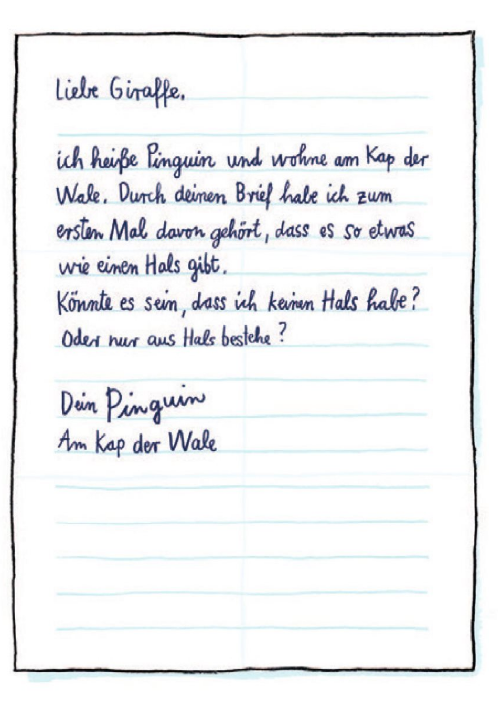 Liebe Giraffe,
ich heiße Pinguin und wohne am Kap der
Wale. Durch deinen Brief habe ich zum
ersten Mal davon gehört, dass es so etwas
wie einen Hals gibt.
Könnte es sein, dass ich keinen Hals habe?
Oder nur aus Hals bestehe?
Dein Pinguin
Am Kap der Wale